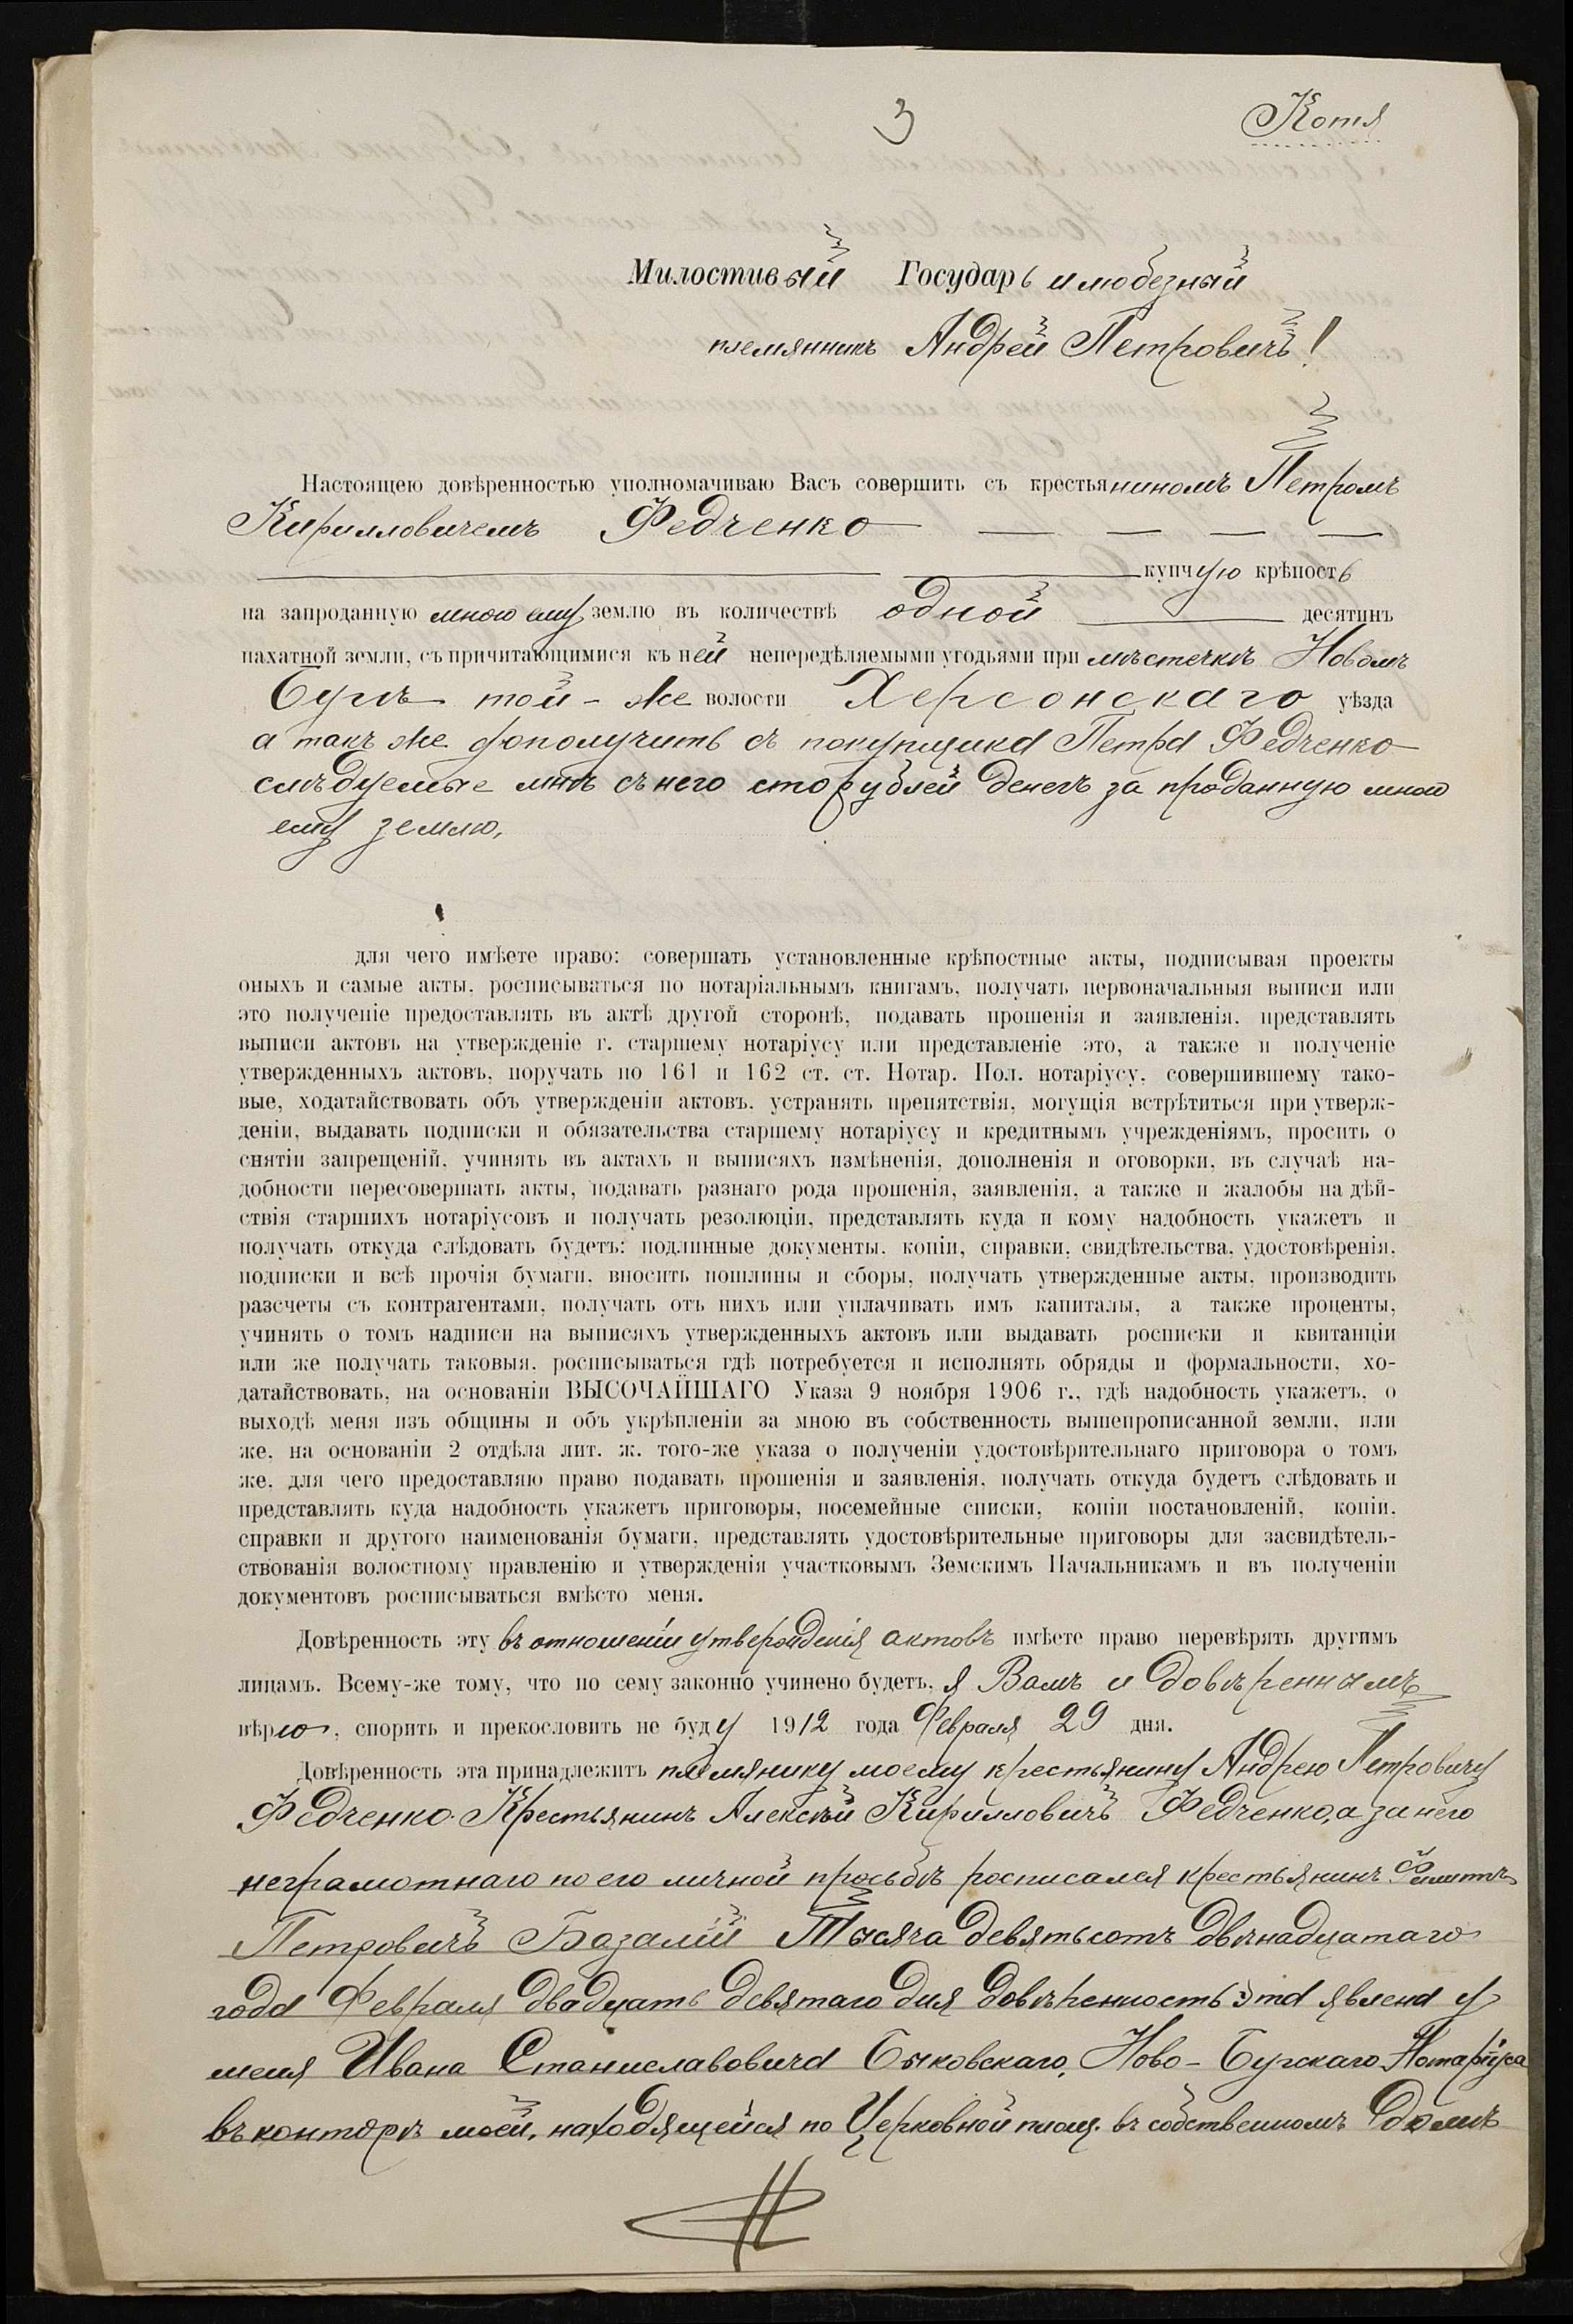 3
Копія
Милостивый Государь и любезный
племянникъ Андрей Петровичъ!
Настоящею довѣренностью уполномачиваю Васъ совершить съ крестьяниномъ Петромъ
Кирилловичемъ Федченко
купчую крѣпость
на запроданную мною ему землю въ количествѣ одной десятинъ
пахатной земли, съ причитающимися къ ней непередѣляемыми угодьями при мѣстечкѣ Новомъ
Бугѣ той-же волости Херсонскаго уѣзда
а такъ же дополучить съ покупщика Петра Федченко
слѣдуемые мнѣ съ него сто рублей денегъ за проданную мною
ему землю,
для чего имѣете право: совершать установленные крѣпостные акты, подписывая проекты
оныхъ и самые акты, росписываться по нотаріальнымъ книгамъ, получать первоначальныя выписи или
это полученіе предоставлять въ актѣ другой сторонѣ, подавать прошенія и заявленія, представлять
выписи актовъ на утвержденіе г. старшему нотаріусу или представленіе это, а также и полученіе
утвержденныхъ актовъ, поручать по 161 и 162 ст. ст. Нотар. Пол. нотаріусу, совершившему тако-
вые, ходатайствовать объ утвержденіи актовъ, устранять препятствія, могущія встрѣтиться при утверж-
деніи, выдавать подписки и обязательства старшему нотаріусу и кредитнымъ учрежденіямъ, просить о
снятіи запрещеній, учинять въ актахъ и выписяхъ измѣненія, дополненія и оговорки, въ случаѣ на-
добности пересовершать акты, подавать разнаго рода прошенія, заявленія, а также и жалобы на дѣй-
ствія старшихъ нотаріусовъ и получать резолюціи, представлять куда и кому надобность укажетъ и
получать откуда слѣдовать будетъ: подлинные документы, копіи, справки, свидѣтельства, удостовѣренія,
подписки и всѣ прочія бумаги, вносить пошлины и сборы, получать утвержденные акты, производить
разсчеты съ контрагентами, получать отъ нихъ или уплачивать имъ капиталы, а также проценты,
учинять о томъ надписи на выписяхъ утвержденныхъ актовъ или выдавать росписки и квитанціи
или же получать таковыя, росписываться гдѣ потребуется и исполнять обряды и формальности, хо-
датайствовать, на основаніи ВЫСОЧАЙШАГО Указа 9 ноября 1906 г., гдѣ надобность укажетъ, о
выходѣ меня изъ общины и объ укрѣпленіи за мною въ собственность вышепрописанной земли, или
же, на основаніи 2 отдѣла лит. ж. того-же указа о полученіи удостовѣрительнаго приговора о томъ
же, для чего предоставляю право подавать прошенія и заявленія, получать откуда будетъ слѣдовать и
представлять куда надобность укажетъ приговоры, посемейные списки, копіи постановленій, копіи,
справки и другого наименованія бумаги, представлять удостовѣрительные приговоры для засвидѣтель-
ствованія волостному правленію и утвержденія участковымъ Земскимъ Начальникамъ и въ полученіи
документовъ росписываться вмѣсто меня.
Довѣренность эту въ отношеніи утвержденія актовъ имѣете право перевѣрять другимъ
лицамъ. Всему-же тому, что по сему законно учинено будетъ, я Вамъ и довѣреннымъ
вѣрю, спорить и прекословить не буду 1912 года Февраля 29 дня.
Довѣренность эта принадлежитъ племянику моему крестьянину Андрею Петровичу
Федченко. Крестьянинъ Алексѣй Кирилловичъ Федченко, а за него
неграмотнаго по его личной просьбѣ росписался крестьянинъ Филиппъ
Петровичъ Базалій Тысяча девятьсотъ двѣнадцатаго
года Февраля двадцать девятаго дня довѣренность эта явлена у
меня Ивана Станиславовича Быковскаго, Ново-Бугскаго Нотаріуса
въ конторѣ моей, находящейся по Церковной площ. въ собственномъ домѣ